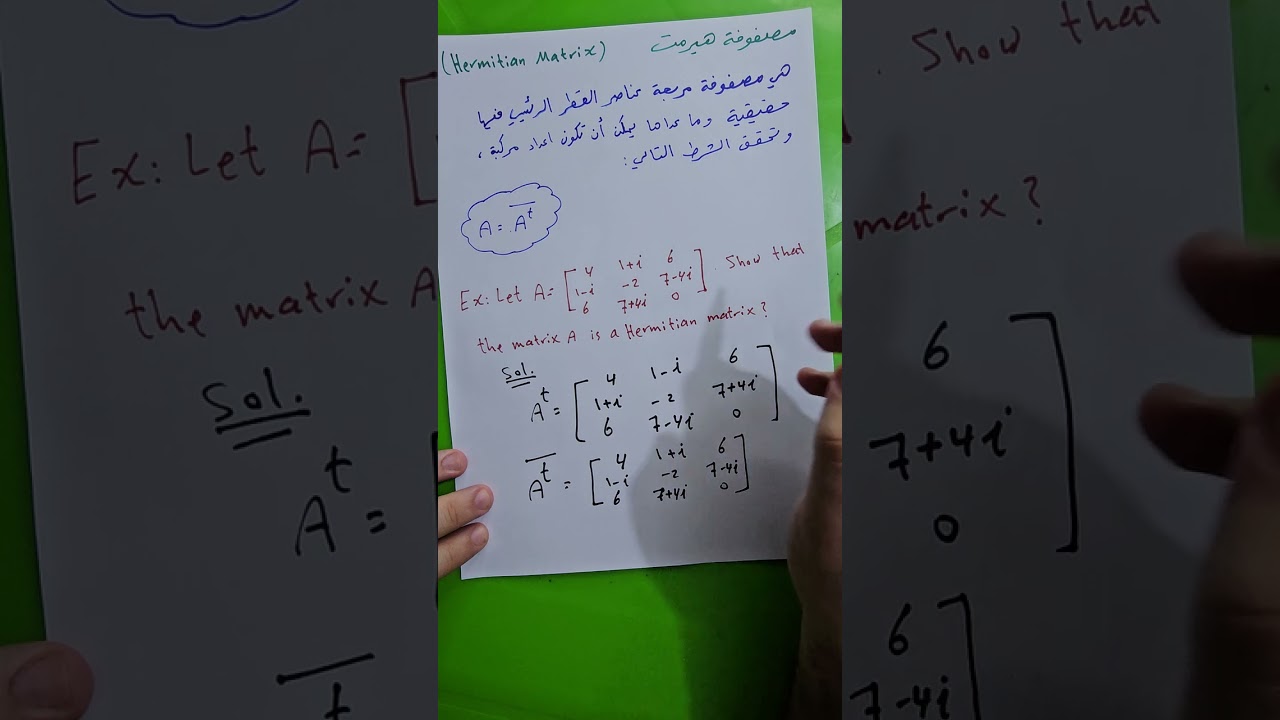 (Hermitian Matrix) مصفوفة هيرمت
هي مصفوفة مربعة عناصر القطر الرئيسي فيها
حقيقية وما عداها يمكن أن تكون اعداد مركبة ،
وتحقق الشرط التالي :
A = \overline{A^t}
Ex: Let A = [4 1+i 6
1-i -2 7-4i
6 7+4i 0] . Show that
the matrix A is a Hermitian matrix?
Sol.
A^t = [4 1-i 6
1+i -2 7+4i
6 7-4i 0]
\overline{A^t} = [4 1+i 6
1-i -2 7-4i
6 7+4i 0]